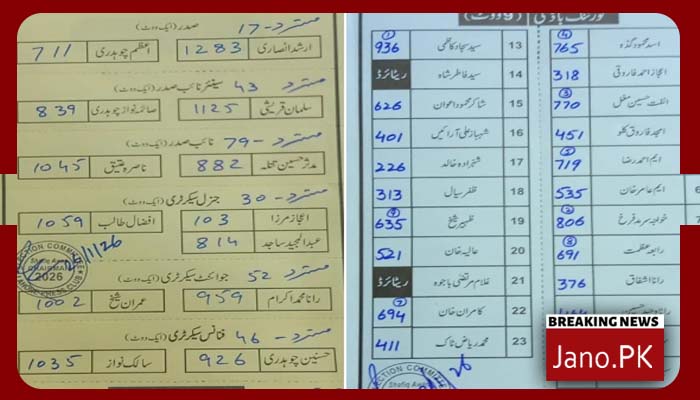 صدر (ایک ووٹ) مسترد - 17
ارشد انصاری 1283 اعظم چوہدری 711
سینئر نائب صدر (ایک ووٹ) 43 مسترد
سلمان قریشی 1125 صائمہ نواز چوہدری 839
نائب صدر (ایک ووٹ) 79 - مسترد
مدثر حسین تتلہ 882 ناصرہ عتیق 1045
جنرل سیکرٹری (ایک ووٹ) 30 - مسترد
اعجاز مرزا 103 افضال طالب 1059
عبدالمجید ساجد 814
جوائنٹ سیکرٹری (ایک ووٹ) 52 مسترد
رانا محمد اکرام 959 عمران شیخ 1002
فنانس سیکرٹری (ایک ووٹ) 46 - مسترد
حسنین چوہدری 926 سالک نواز 1035
ELECTION COMMITTEE
CHAIRMAN
2026
LAHORE PRESS CLUB
گورننگ باڈی (9 ووٹ)
اسد محمود گڈہ 4 765
اعجاز احمد فاروقی 318
الفت حسین مغل 3 770
امجد فاروق کلو 451
ایم احمد رضا 5 719
ایم عامر خان 535
خواجہ سرمد فرخ 2 806
رابعہ عظمت 8 691
رانا اشفاق 376
رانا وحید حسین
13 سید سجاد کاظمی 1 936
14 سید فاطر شاہ ریٹائرڈ
15 شاکر محمود اعوان 626
16 شہباز علی آرائیں 401
17 شہزادہ خالد 226
18 ظفر سیال 313
19 ظہیر شیخ 9 635
20 عالیہ خان 521
21 غلام مرتضیٰ باجوہ ریٹائرڈ
22 کامران خان 7 694
23 محمد ریاض ٹاک 411
ELECTION COMMITTEE
Shafiq
BREAKING NEWS
Jano.PK